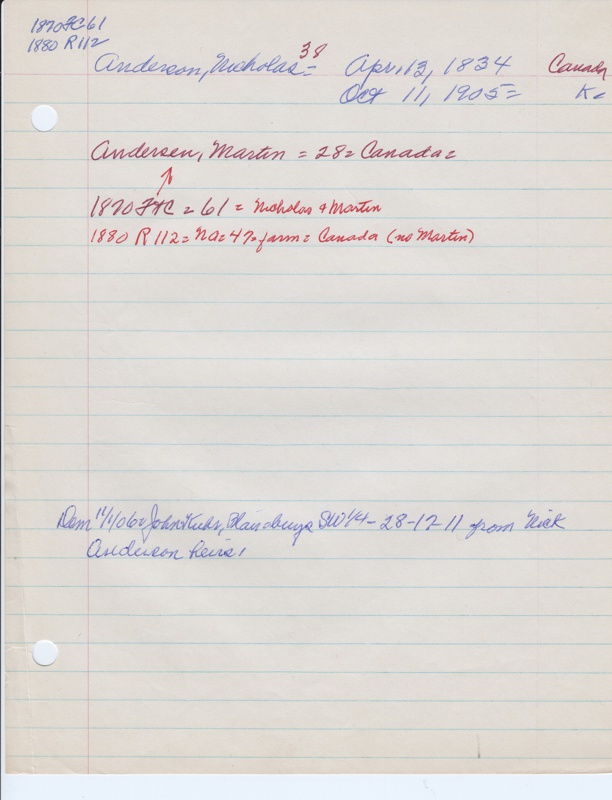 1870 FC 61
1880 R 112
Anderson, Nicholas = 38 Apr. 13, 1834 Canada
Oct 11, 1905 = K =
Andersen, Martin = 28 = Canada =
1870 FtC = 61 = Nicholas & Martin
1880 R 112 = Na = 47 = farm = Canada (no Martin)
Dem 11/1/06 = John Kuhr, Blaine buys SW 1/4 - 28-12-11 from Nick
Anderson heirs,